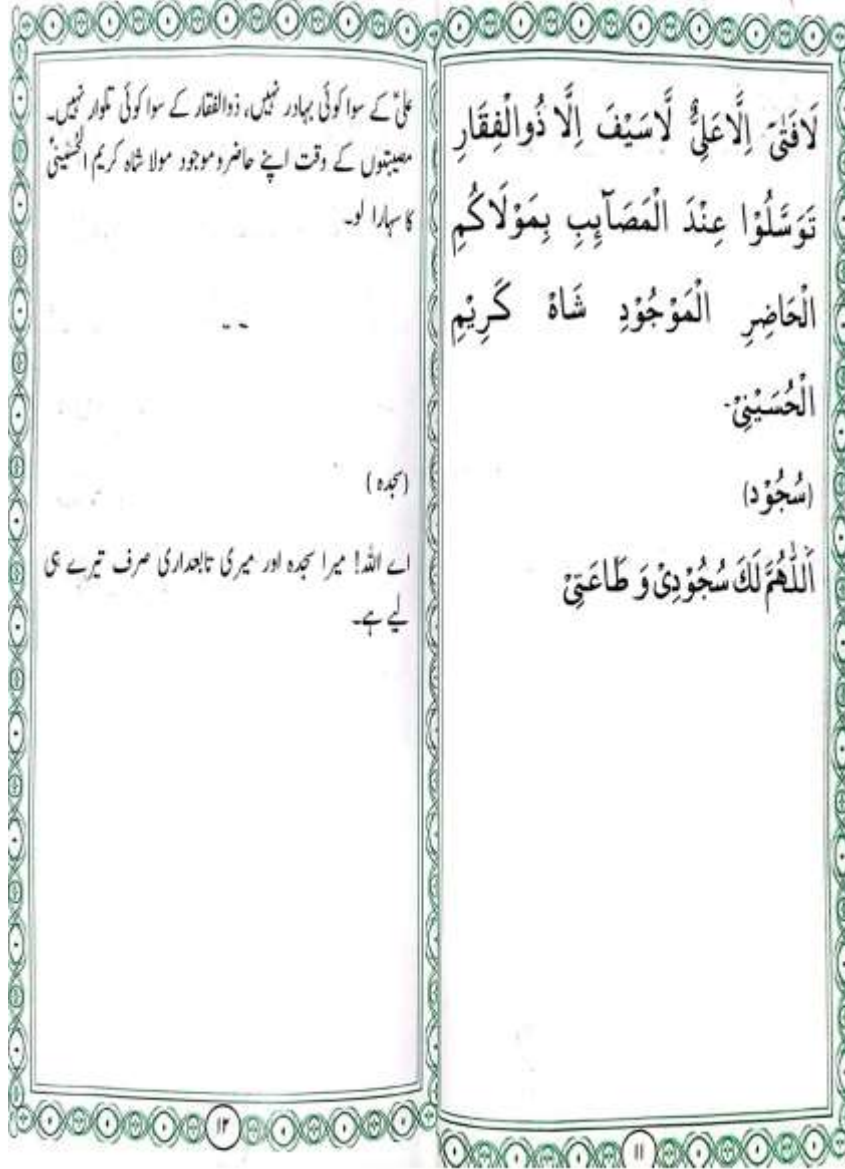 لَافَتٰىَ اِلَّاعَلِيٌّ لَّاسَيْفَ اِلَّا ذُوالْفِقَارِ
تَوَسَّلُوْا عِنْدَ الْمَصَآئِبِ بِمَوْلَاكُمِ
الْحَاضِرِ الْمَوْجُوْدِ شَاهْ كَرِيْمِ
الْحُسَيْنِيْ۔
(سُجُوْد)
اَللّٰهُمَّ لَكَ سُجُوْدِیْ وَ طَاعَتِیْ
۱۱
علیؑ کے سوا کوئی بہادر نہیں، ذوالفقار کے سوا کوئی تلوار نہیں۔
مصیبتوں کے وقت اپنے حاضر و موجود مولا شاہ کریم الحُسَینیؑ
کا سہارا لو۔
(سجدہ)
اے اللہ! میرا سجدہ اور میری تابعداری صرف تیرے ہی
لیے ہے۔
۱۲